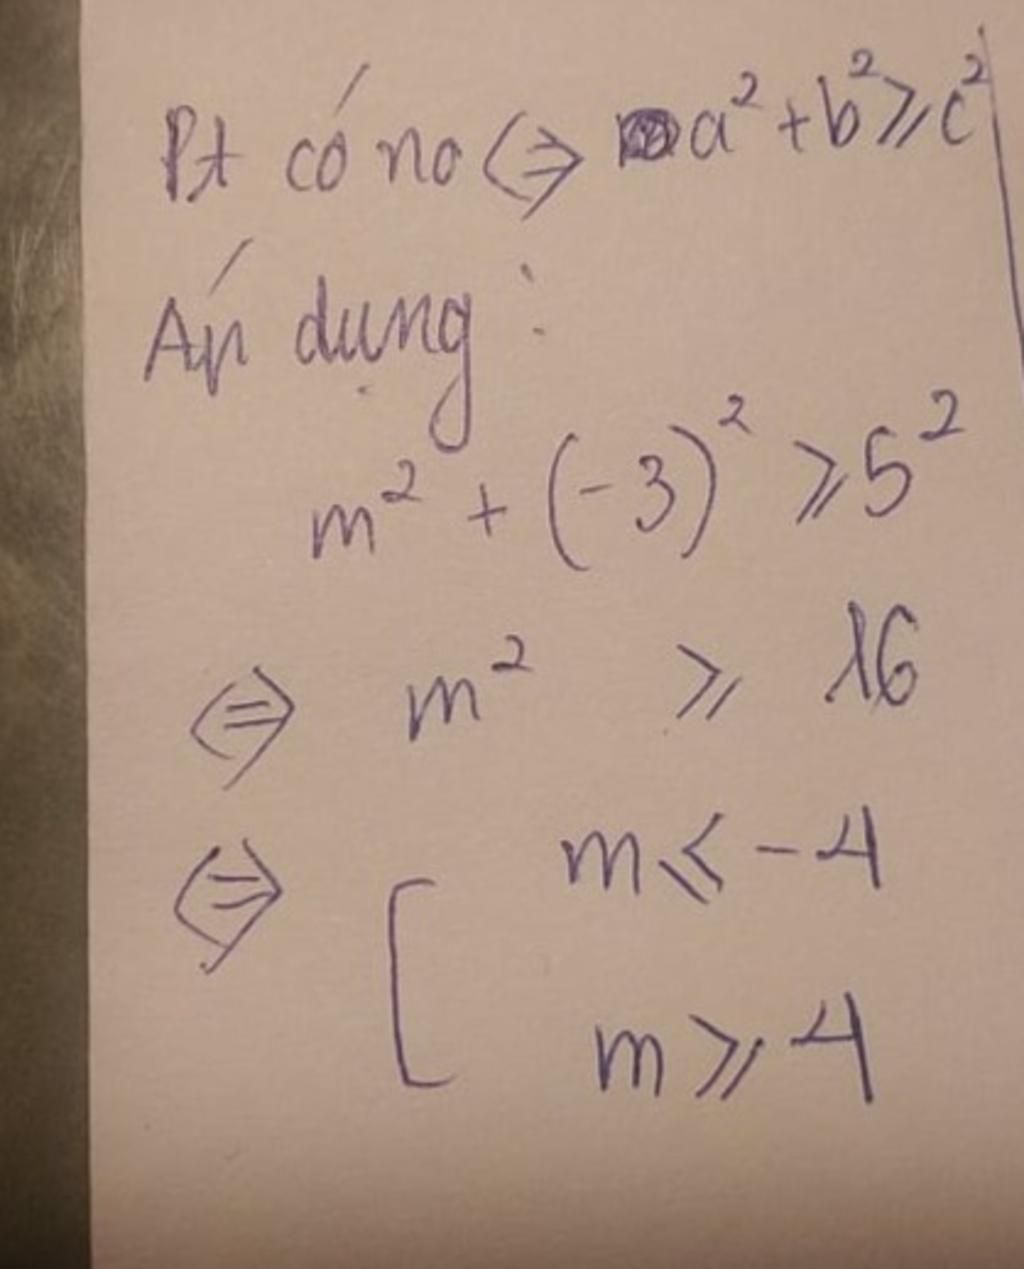 Pt có no ⇔ a² + b² ⩾ c²
Áp dụng :
m² + (-3)² ⩾ 5²
⇔ m² ⩾ 16
⇔ [ m ⩽ -4
m ⩾ 4